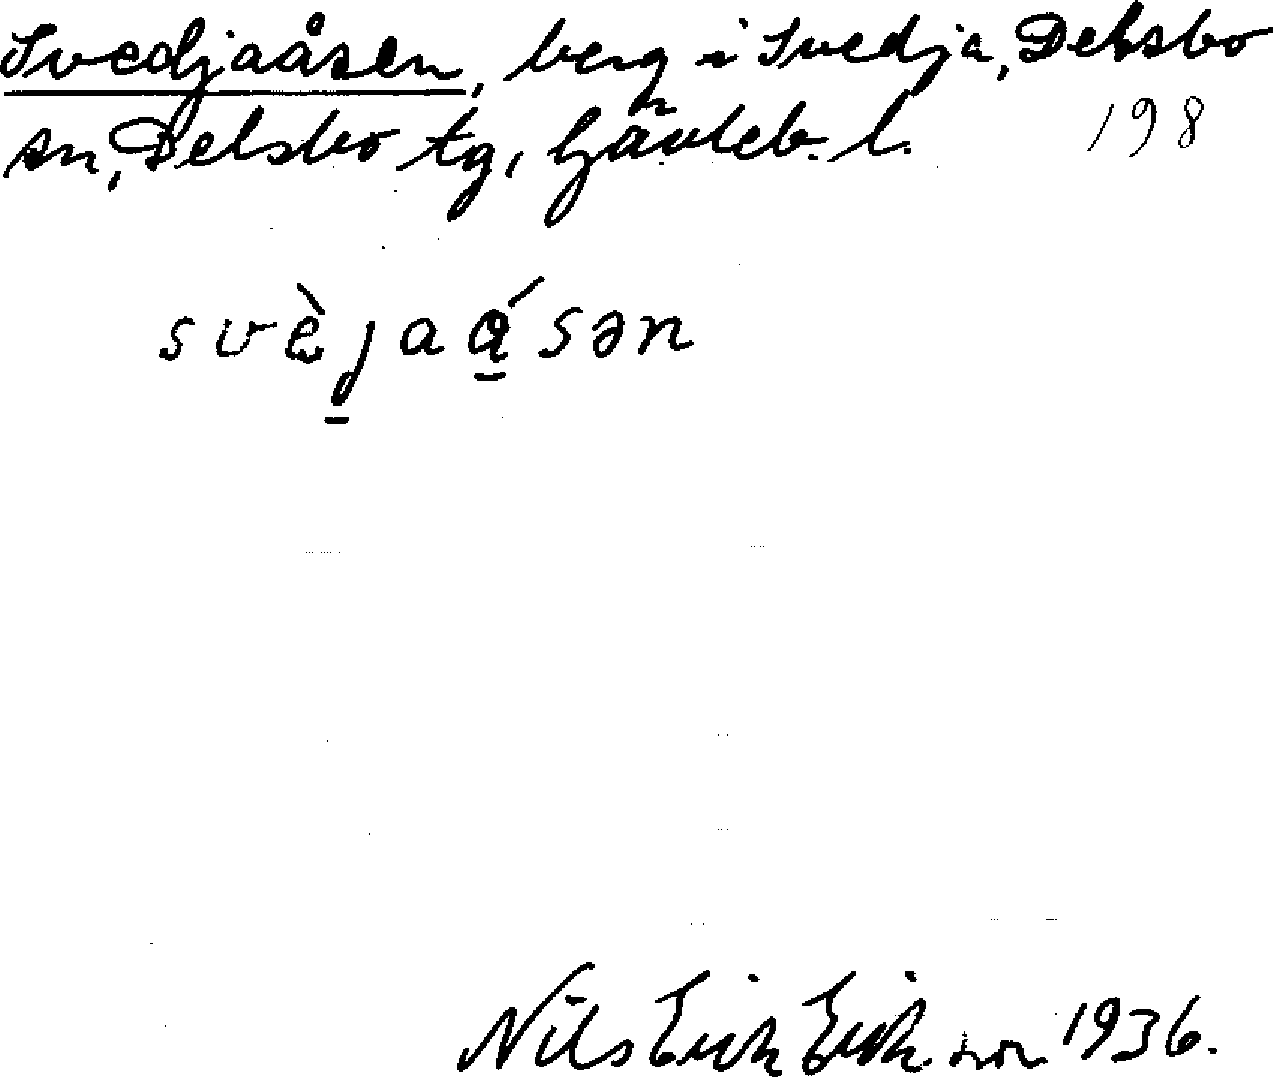 Svedjaåsen, berg i Svedja, Delsbo
sn, Delsbo tg, Gävleb. l. 198
svèjaá̱sən
Nils Erik Eriksson 1936.